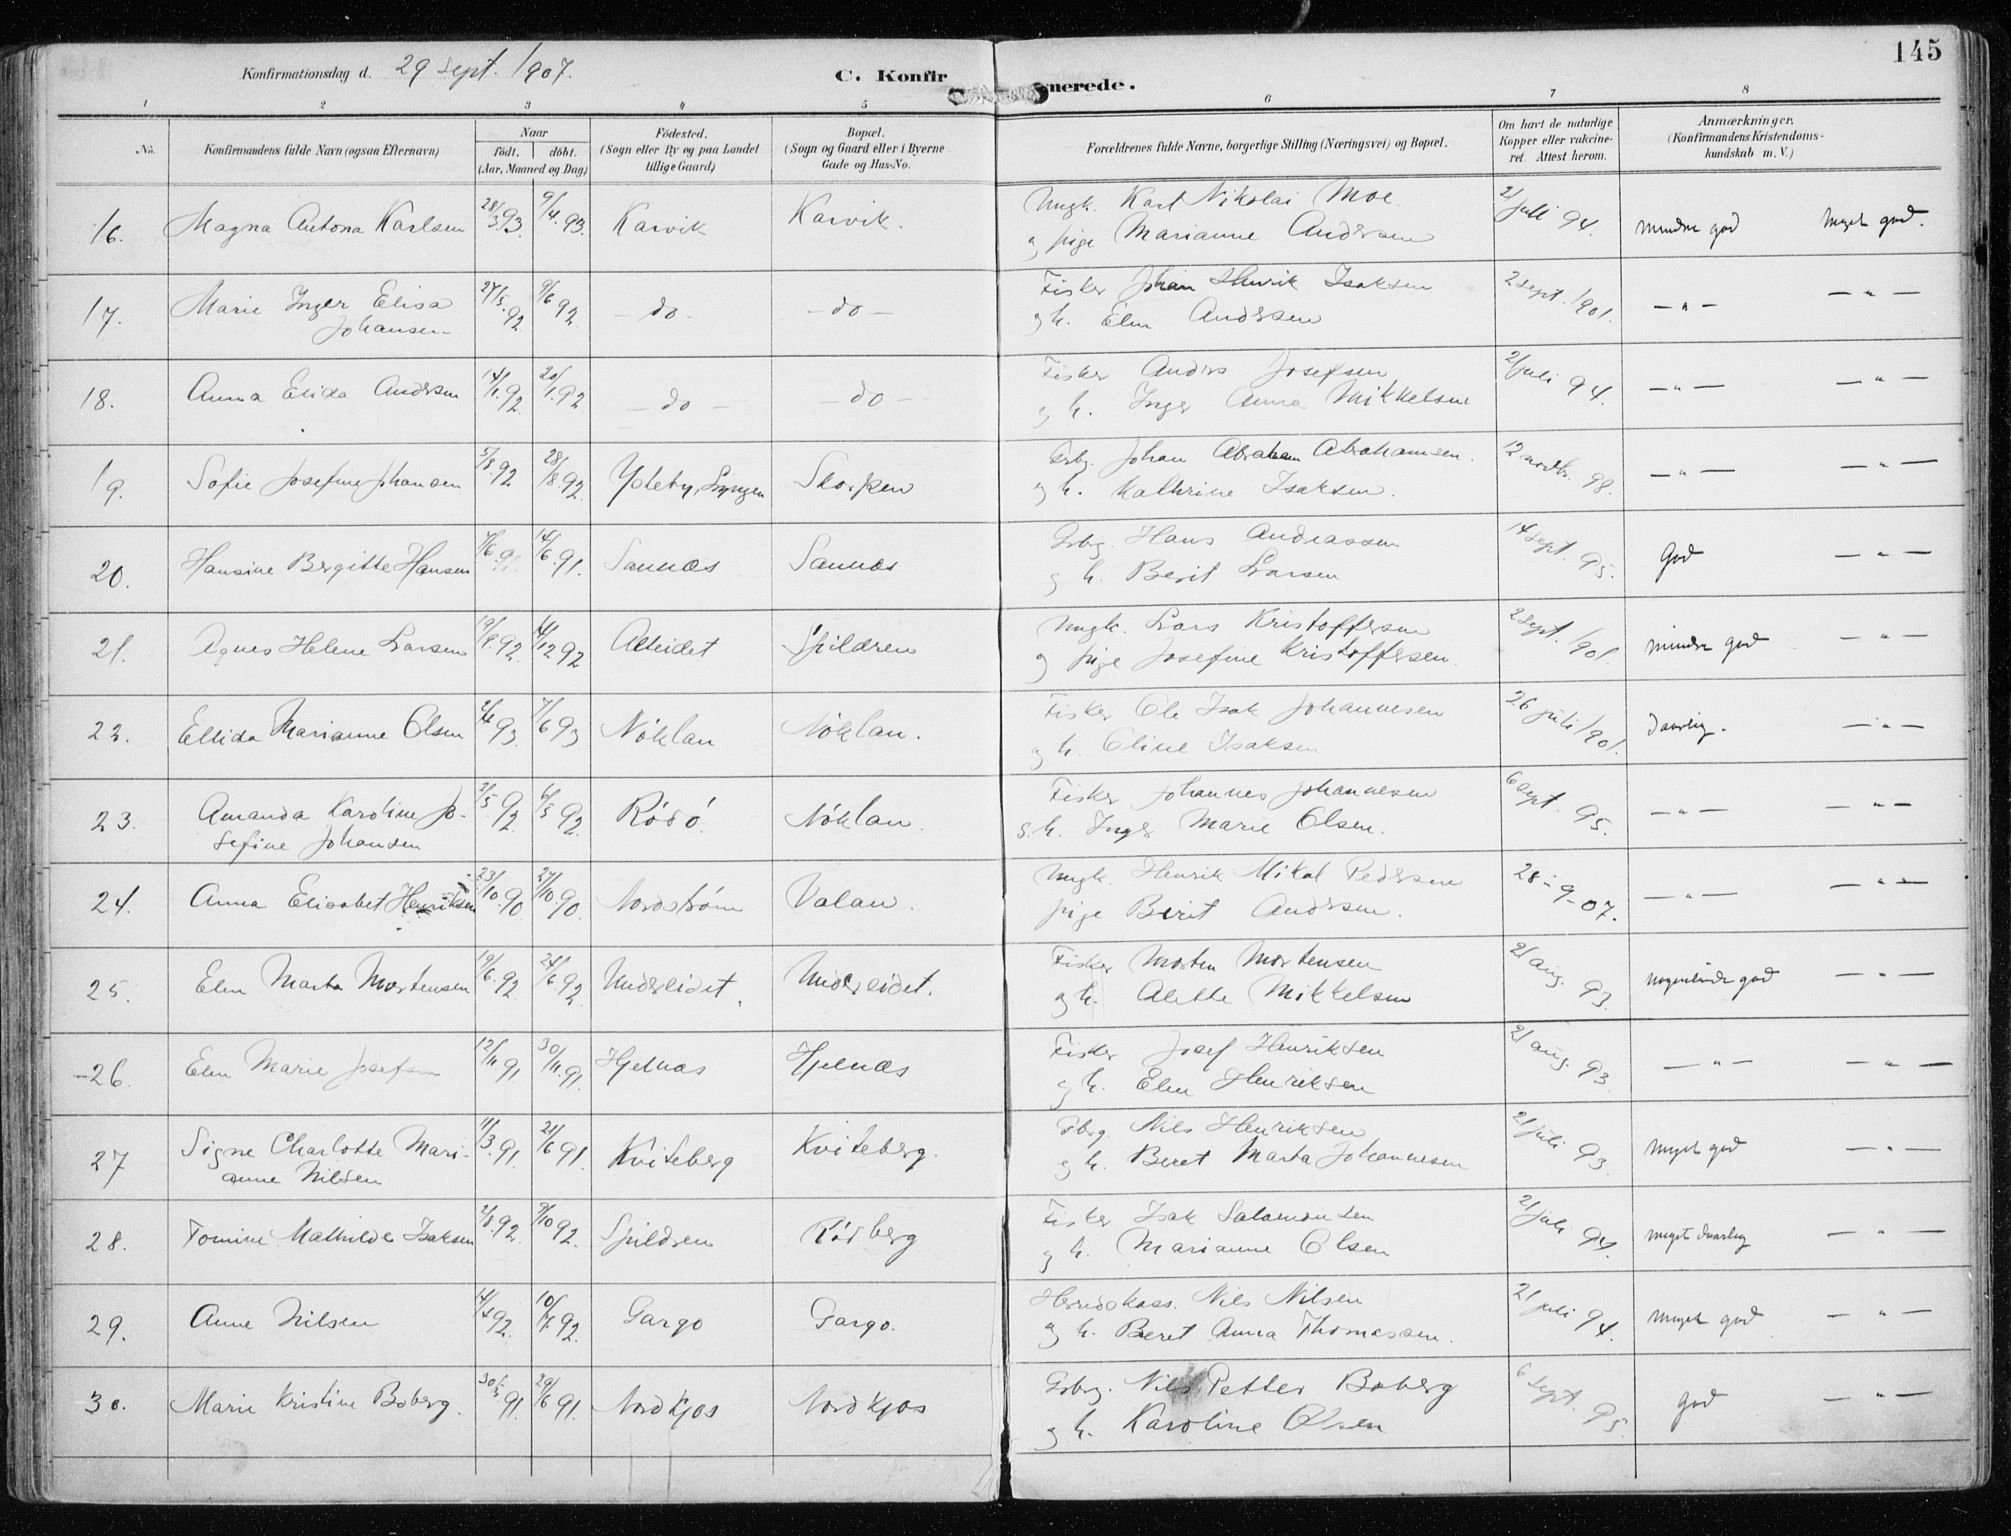 145
Konfirmationsdag d. 29 sept. 1907.
C. Konfir merede.
1 2 3 4 5 6 7 8
No. Konfirmandens fulde Navn (ogsaa Efternavn) Naar født. døbt. (Aar, Maaned og Dag) Fødested. (Sogn eller By og paa Landet tillige Gaard) Bopæl. (Sogn og Gaard eller i Byerne Gade og Hus-No. Forældrenes fulde Navne, borgerlige Stilling (Næringsvei) og Bopæl. Om havt de naturlige Kopper eller vakcineret. Attest herom. Anmærkninger. (Konfirmandens Kristendomskundskab m. V.)
16. Magna Antona Karlsen 28/3 93. 9/4. 93. Karvik Karvik. Ungk. Karl Nikolai Moe 2/ juli 94. mindre god meget god.
og pige Marianne Andersen
17. Marie Inger Elisa 27/5. 92 9/6 92. – do – – do – Fisker Johan Henrik Isaksen 2 sept. 1901. – " – – " –
Johansen og h. Elen Andersen
18. Anna Elida Andersen 14/1. 92. 20/1. 92 – do – – do – Fisker Anders Josefsen 2/ juli 94. – " – – " –
og h. Inger Anna Mikkelsen
19. Sofie Josefine Johansen 5/8. 92 28/8. 92. Ytleby, Lyngen Skorpen Grbg. Johan Abraham Abrahamsen. 12 novbr. 98. – " – – " –
og h. Kathrine Isaksen.
20. Hansine Bergitte Hansen 14/6. 91. Sannæs Sannæs Grbg. Hans Andreassen 14 sept. 95. God – " –
og h. Berit Larsen
21. Agnes Helene Larsen 19/8. 92. Alteidet Spildren Ungk. Lars Kristoffersen 2 sept. 1901. mindre god – " –
og pige Josefine Kristoffersen.
22. Ellida Marianne Olsen 2/4 93. 7/6 93 Nöklan Nöklan. Fisker Ole Isak Johannesen 26 juli 1901. Daarlig. – " –
og h. Oline Isaksen
23. Amanda Karoline Jo- 2/5. 92. 92. Rödö. Nöklan. Fisker Johannes Johannesen 6 sept. 95. – " – – " –
sefine Johansen g. h. Inger Marie Olsen.
24. Anna Elisabet Henriksen 23/10. 90. 27/10. 90. Nordström Valan. Ungk. Henrik Mikal Pedersen 28 – 9 – 07. – " – – " –
pige Berit Andersen.
25. Elen Marta Mortensen 19/6. 92. 26/6. 92. Undereidet. Undereidet. Fisker Morten Mortensen 2/ aug. 93. nogenlunde god – " –
og h. Alette Mikkelsen
26. Elen Marie Josefsen 12/11. 91. 30/11. 91. Hjelnæs Hjelnæs Fisker Josef Henriksen 2/ aug. 93. – " – – " –
og h. Elen Henriksen
27 Signe Charlotte Mari- 11/3. 91. 21/6 91. Kviteberg Kviteberg. Gbrg. Nils Henriksen 2/ juli 93. meget god – " –
anne Nilsen og h. Beret Marta Johannesen
28. Tomine Mathilde Isaksen 2/8. 92. 9/10 92. Spildren Rödberg Fisker Isak Salamonsen 2/ juli 94. meget daarlig – " –
og h. Marianne Olsen
29. Anne Nilsen 14/4 92. 10/7. 92. Gargo Gargo. Herredskass. Nils Nilsen 2/ juli 94. meget god – " –
og h. Beret Anna Thomassen.
30. Marie Kristine Boberg. 30/3. 91. 29/6 91. Nordkjos Nordkjos Grbrg. Nils Petter Boberg 6 sept. 95. god – " –
og h. Karoline Olsen